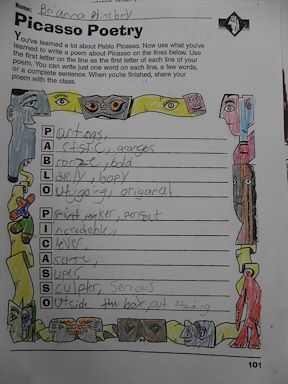 Name: Brianna
Picasso Poetry
You've learned a lot about Pablo Picasso. Now use what you've
learned to write a poem about Picasso on the lines below. Use
the first letter on the line as the first letter of each line of your
poem. You can write just one word on each line, a few words,
or a complete sentence. When you're finished, share your
poem with the class.
Paintings,
Artstic,
Bronze, bold
Lively, happy
Outgoing, origanal
Print maker, perfect
Incredeble,
Clever,
A
Super,
Sculpter, Serious
Outside the box, out standing
101